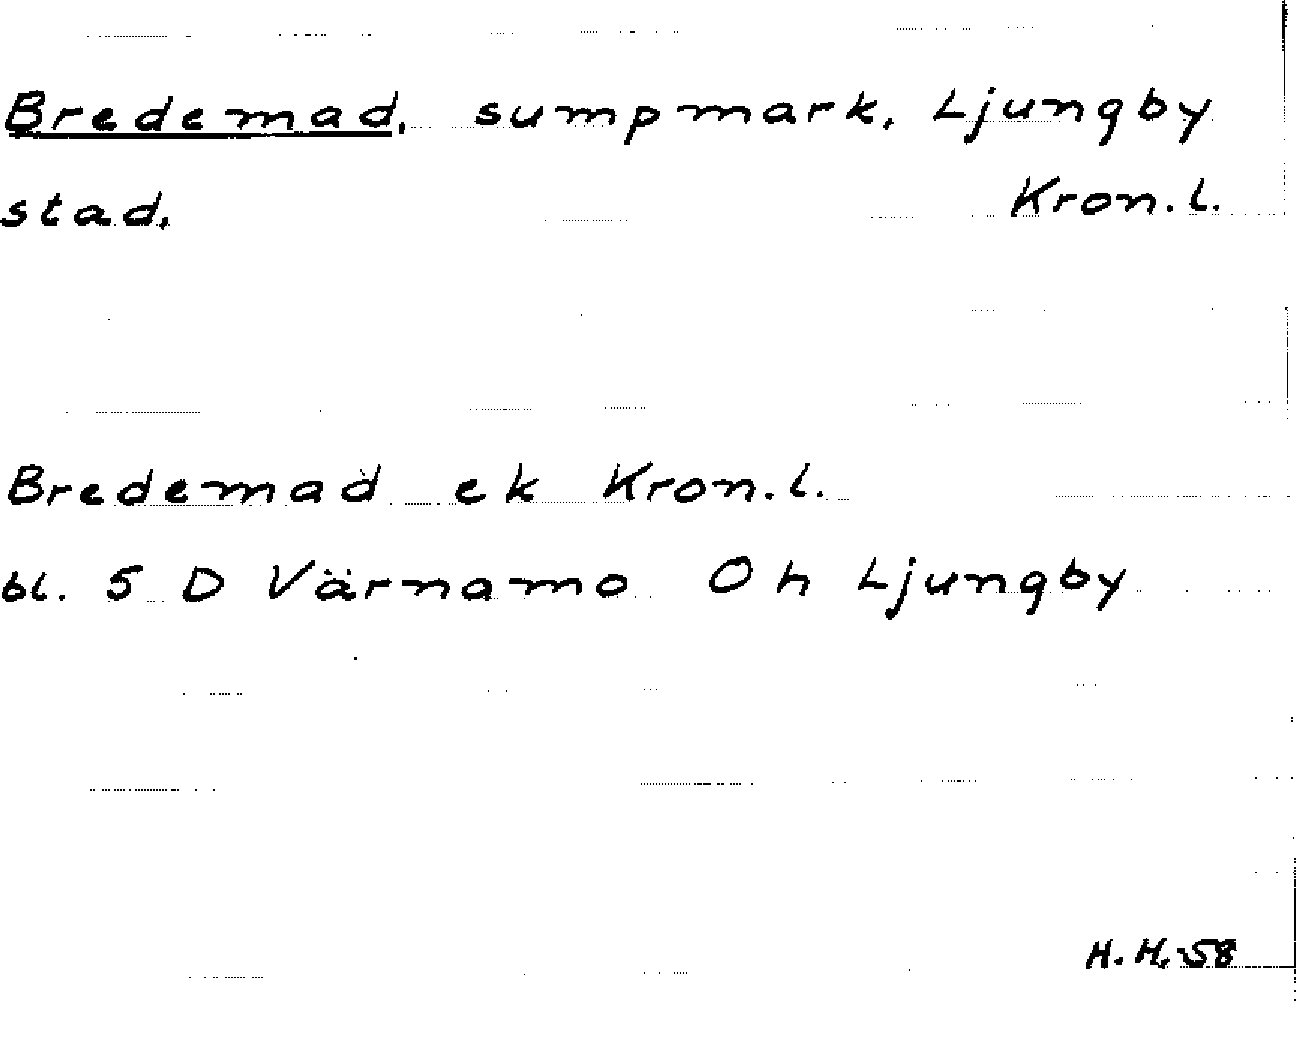 Bredemad, sumpmark, Ljungby
stad, Kron.l.
Bredemad ek Kron.l.
bl. 5 D Värnamo Oh Ljungby
H.H.-58